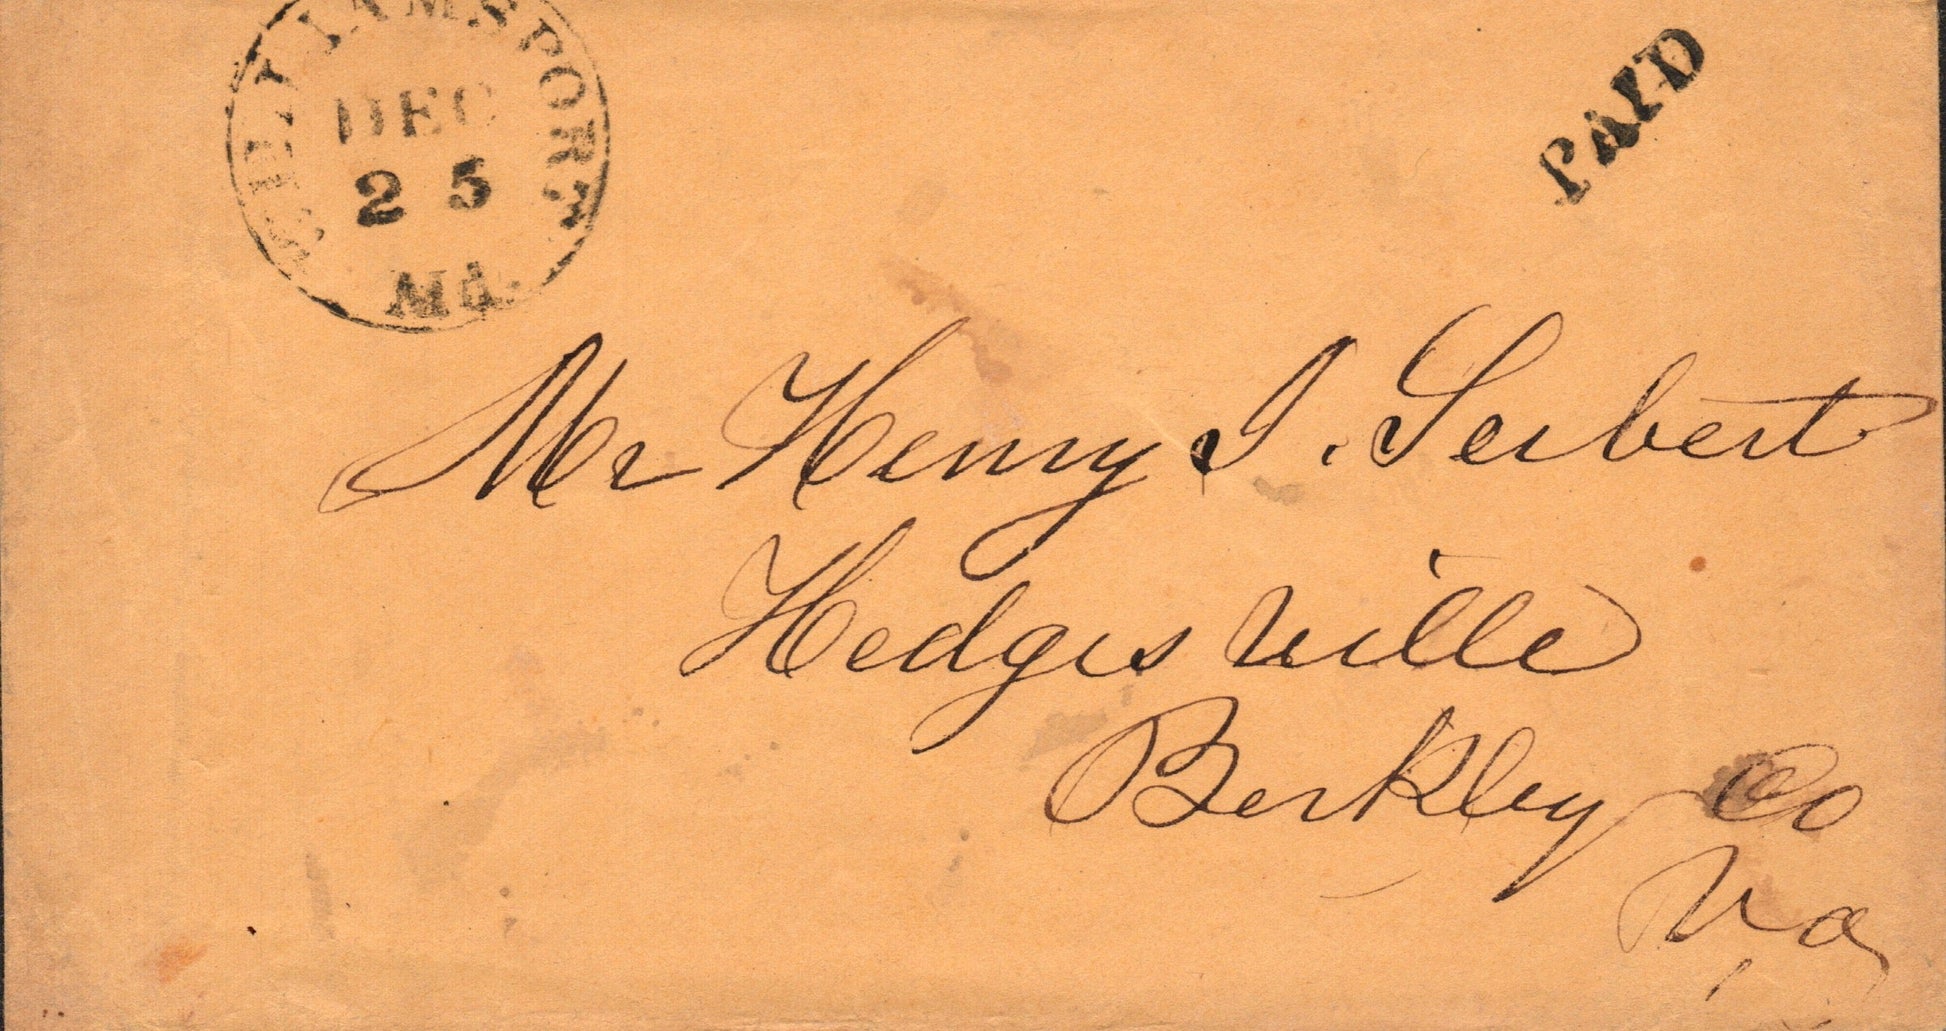 WILLIAMSPORT
DEC
25
Md.
PAID
Mr Henry J. Seibert
Hedgesville
Berkley Co
Va